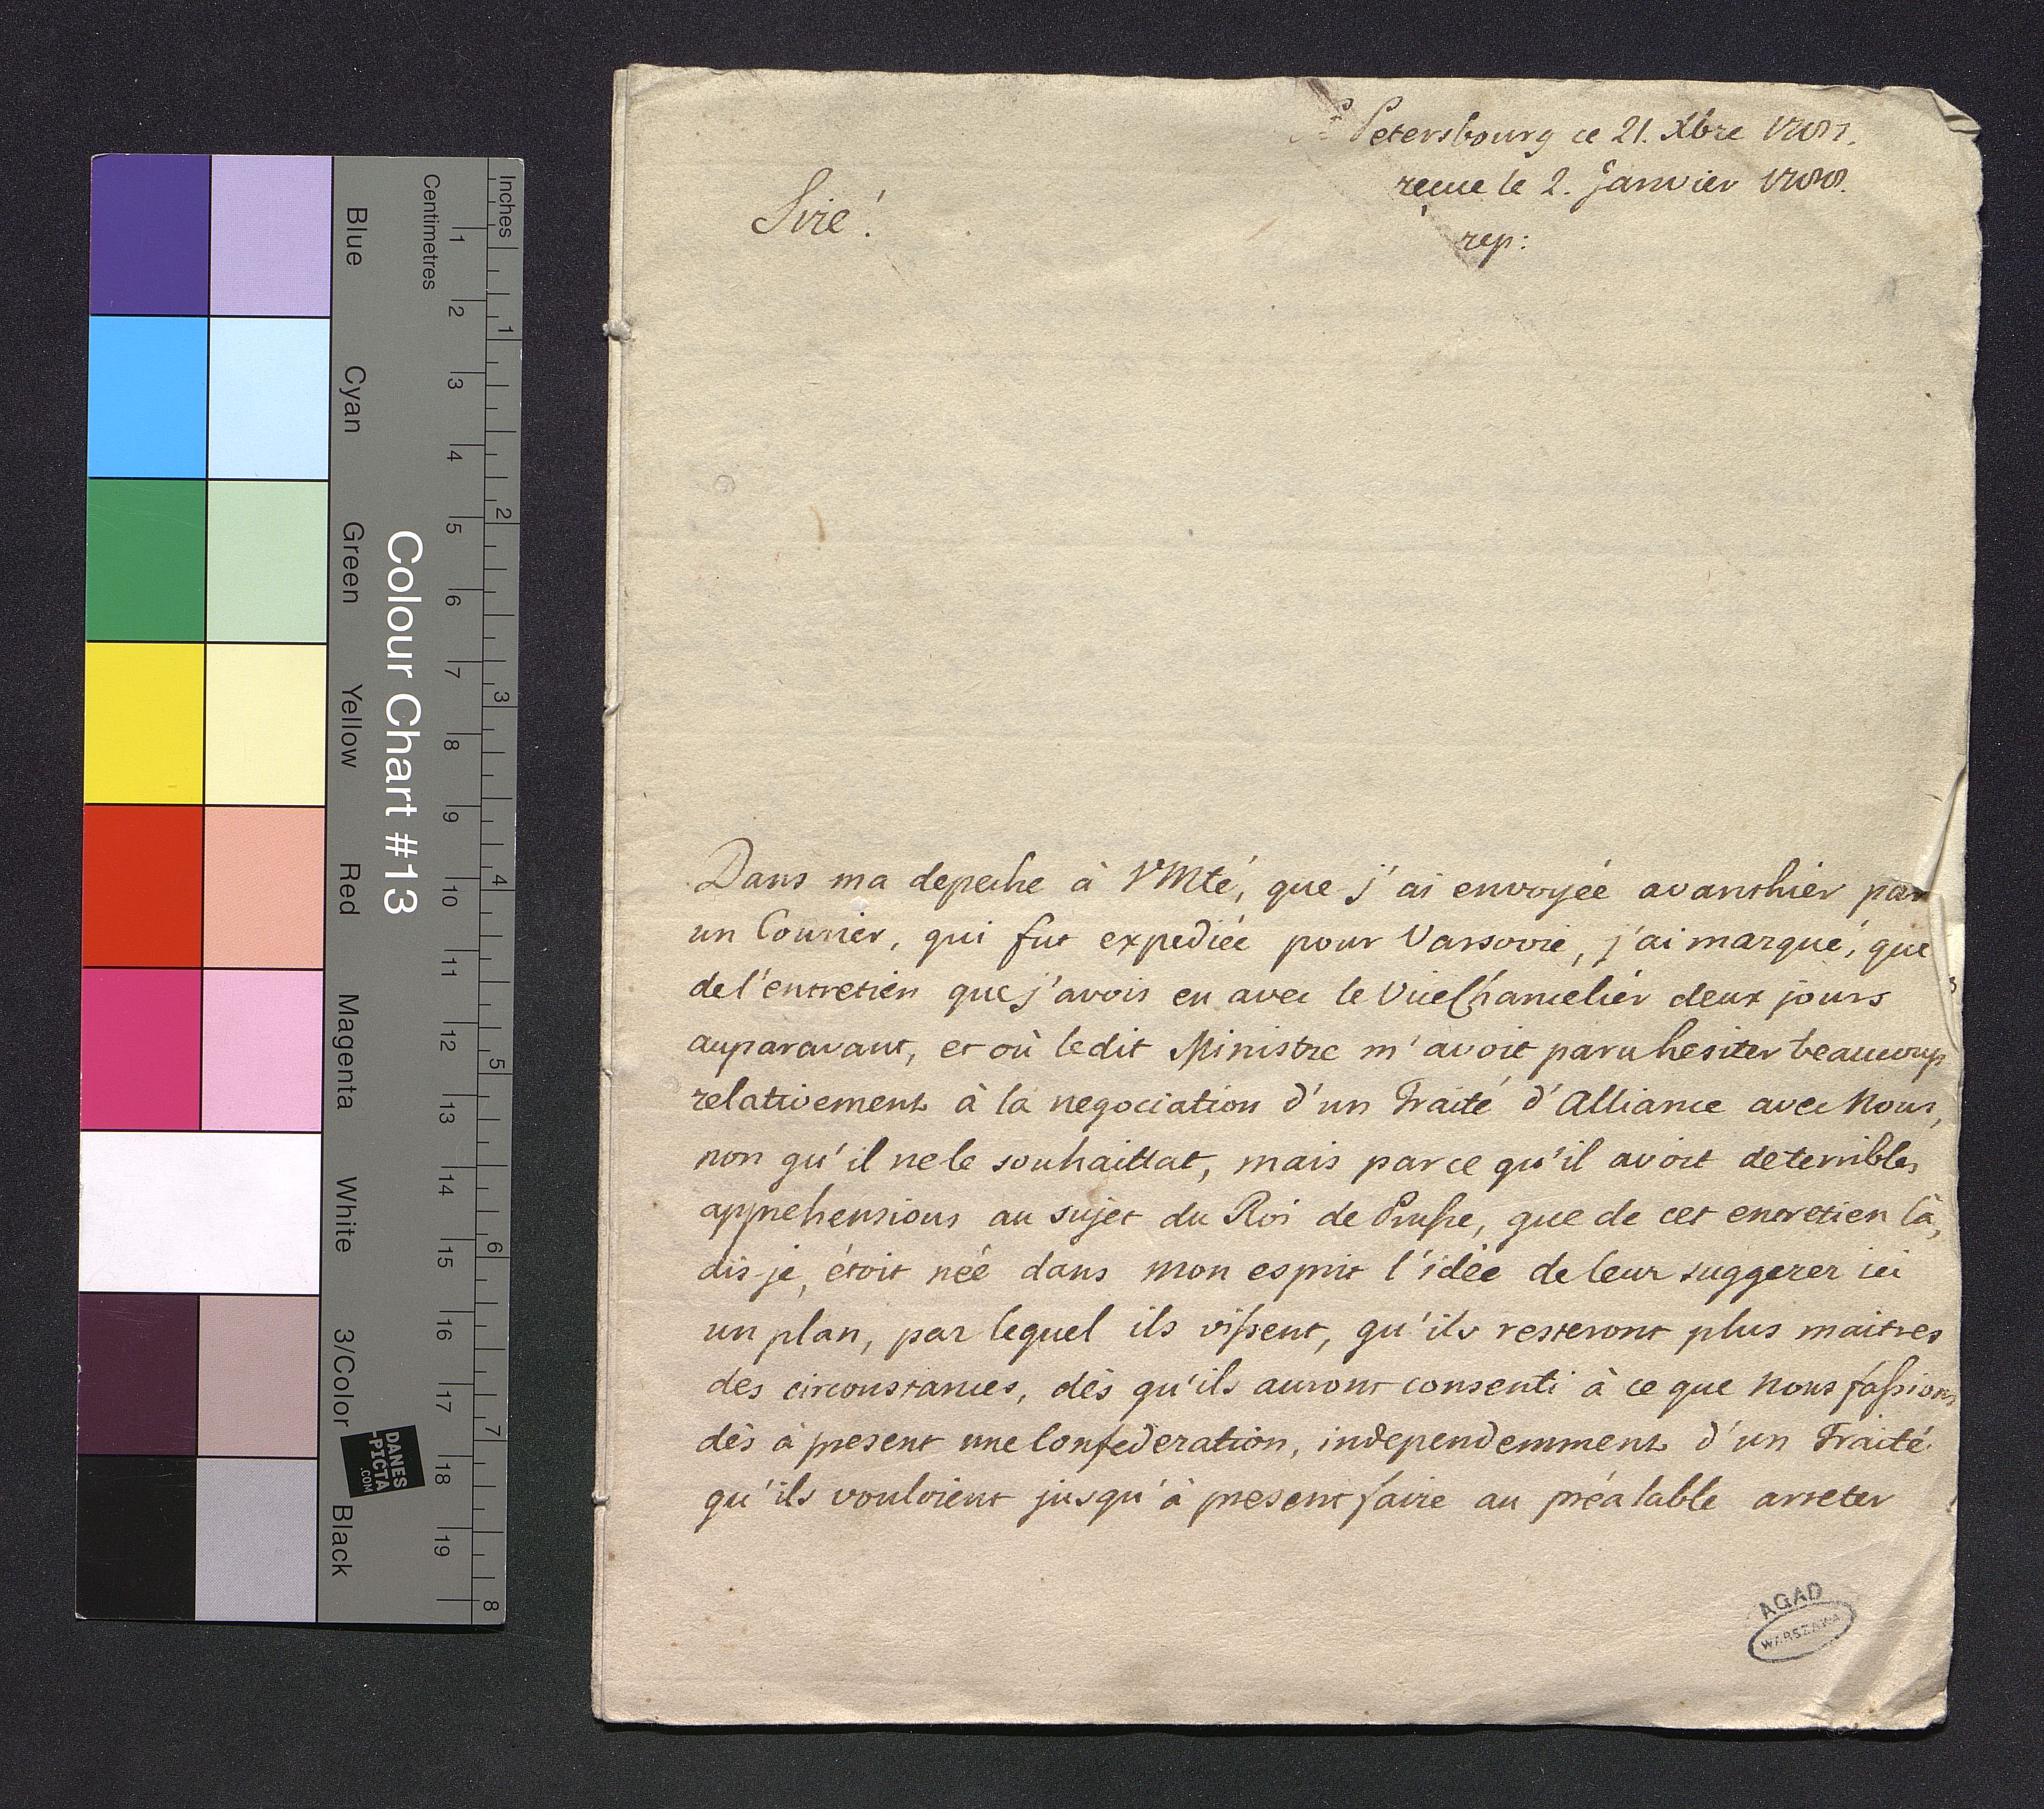 St Petersbourg ce 21. Xbre
reçue le 2. Janvier
rep:
Sire!
Dans ma depeche à VMté, que j'ai envoyée avanthier par
un Courier, qui fut expediée pour Varsovie, j'ai marqué, que
de l'entretien que j'avois eu avec le ViceChancelier deux jours
auparavant, et où ledit Ministre m'avoit paru hesiter beaucoup
relativement à la negociation d'un Traité d'Alliance avec Nous,
non qu'il ne le souhaittat, mais parce qu'il avoit de terribles
apprehensions au sujet du Roi de Prusse, que de cet entretien là,
dis-je, étoit née dans mon esprit l'idée de leur suggerer ici
un plan, par lequel ils vissent, qu'ils resteront plus maitres
des circonstances, dès qu'ils auront consenti à ce que Nous fassions
dès à present une Confederation, independemment d'un Traité
qu'ils vouloient jusqu'à present faire au préalable arreter
AGAD
WARSZAWA
Inches
Centimetres
1 2 3 4 5 6 7 8
1 2 3 4 5 6 7 8 9 10 11 12 13 14 15 16 17 18 19
Colour Chart #13
Blue
Cyan
Green
Yellow
Red
Magenta
White
3/Color
Black
DANES
-PICTA
.COM